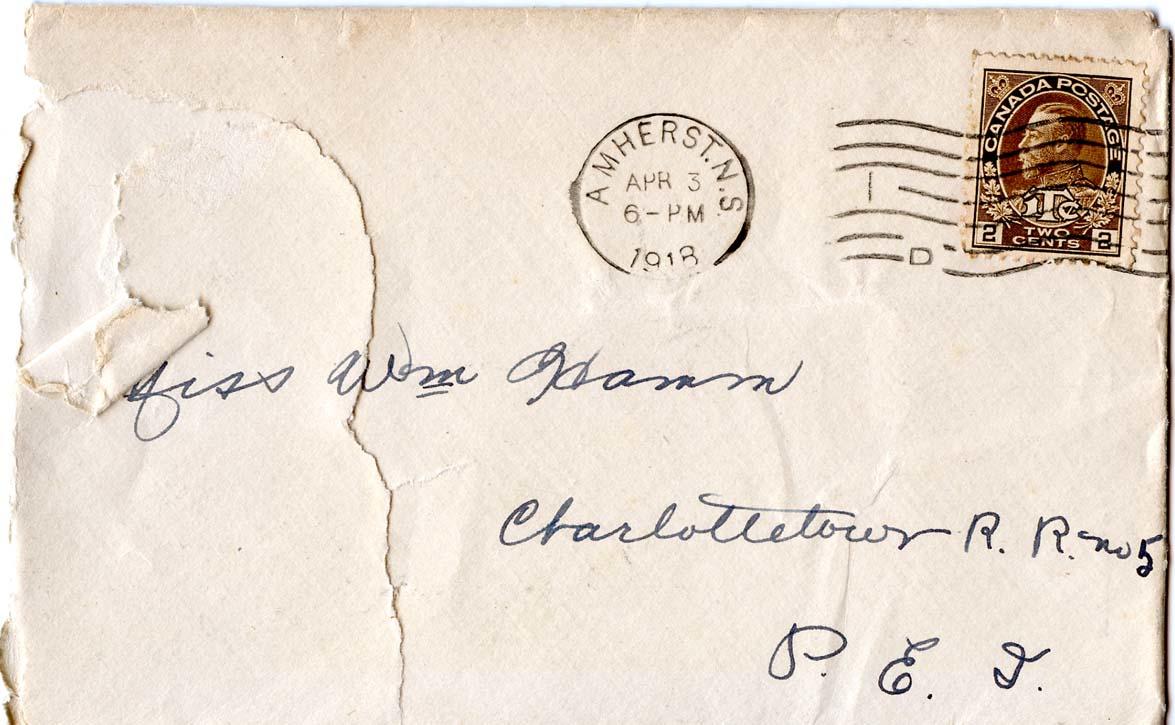 AMHERST. N.S.
APR 3
6-PM
1918
CANADA POSTAGE
1Tc
2 TWO CENTS 2
D
iss Wm Hamm
Charlottetown R. R. no 5
P. E. I.